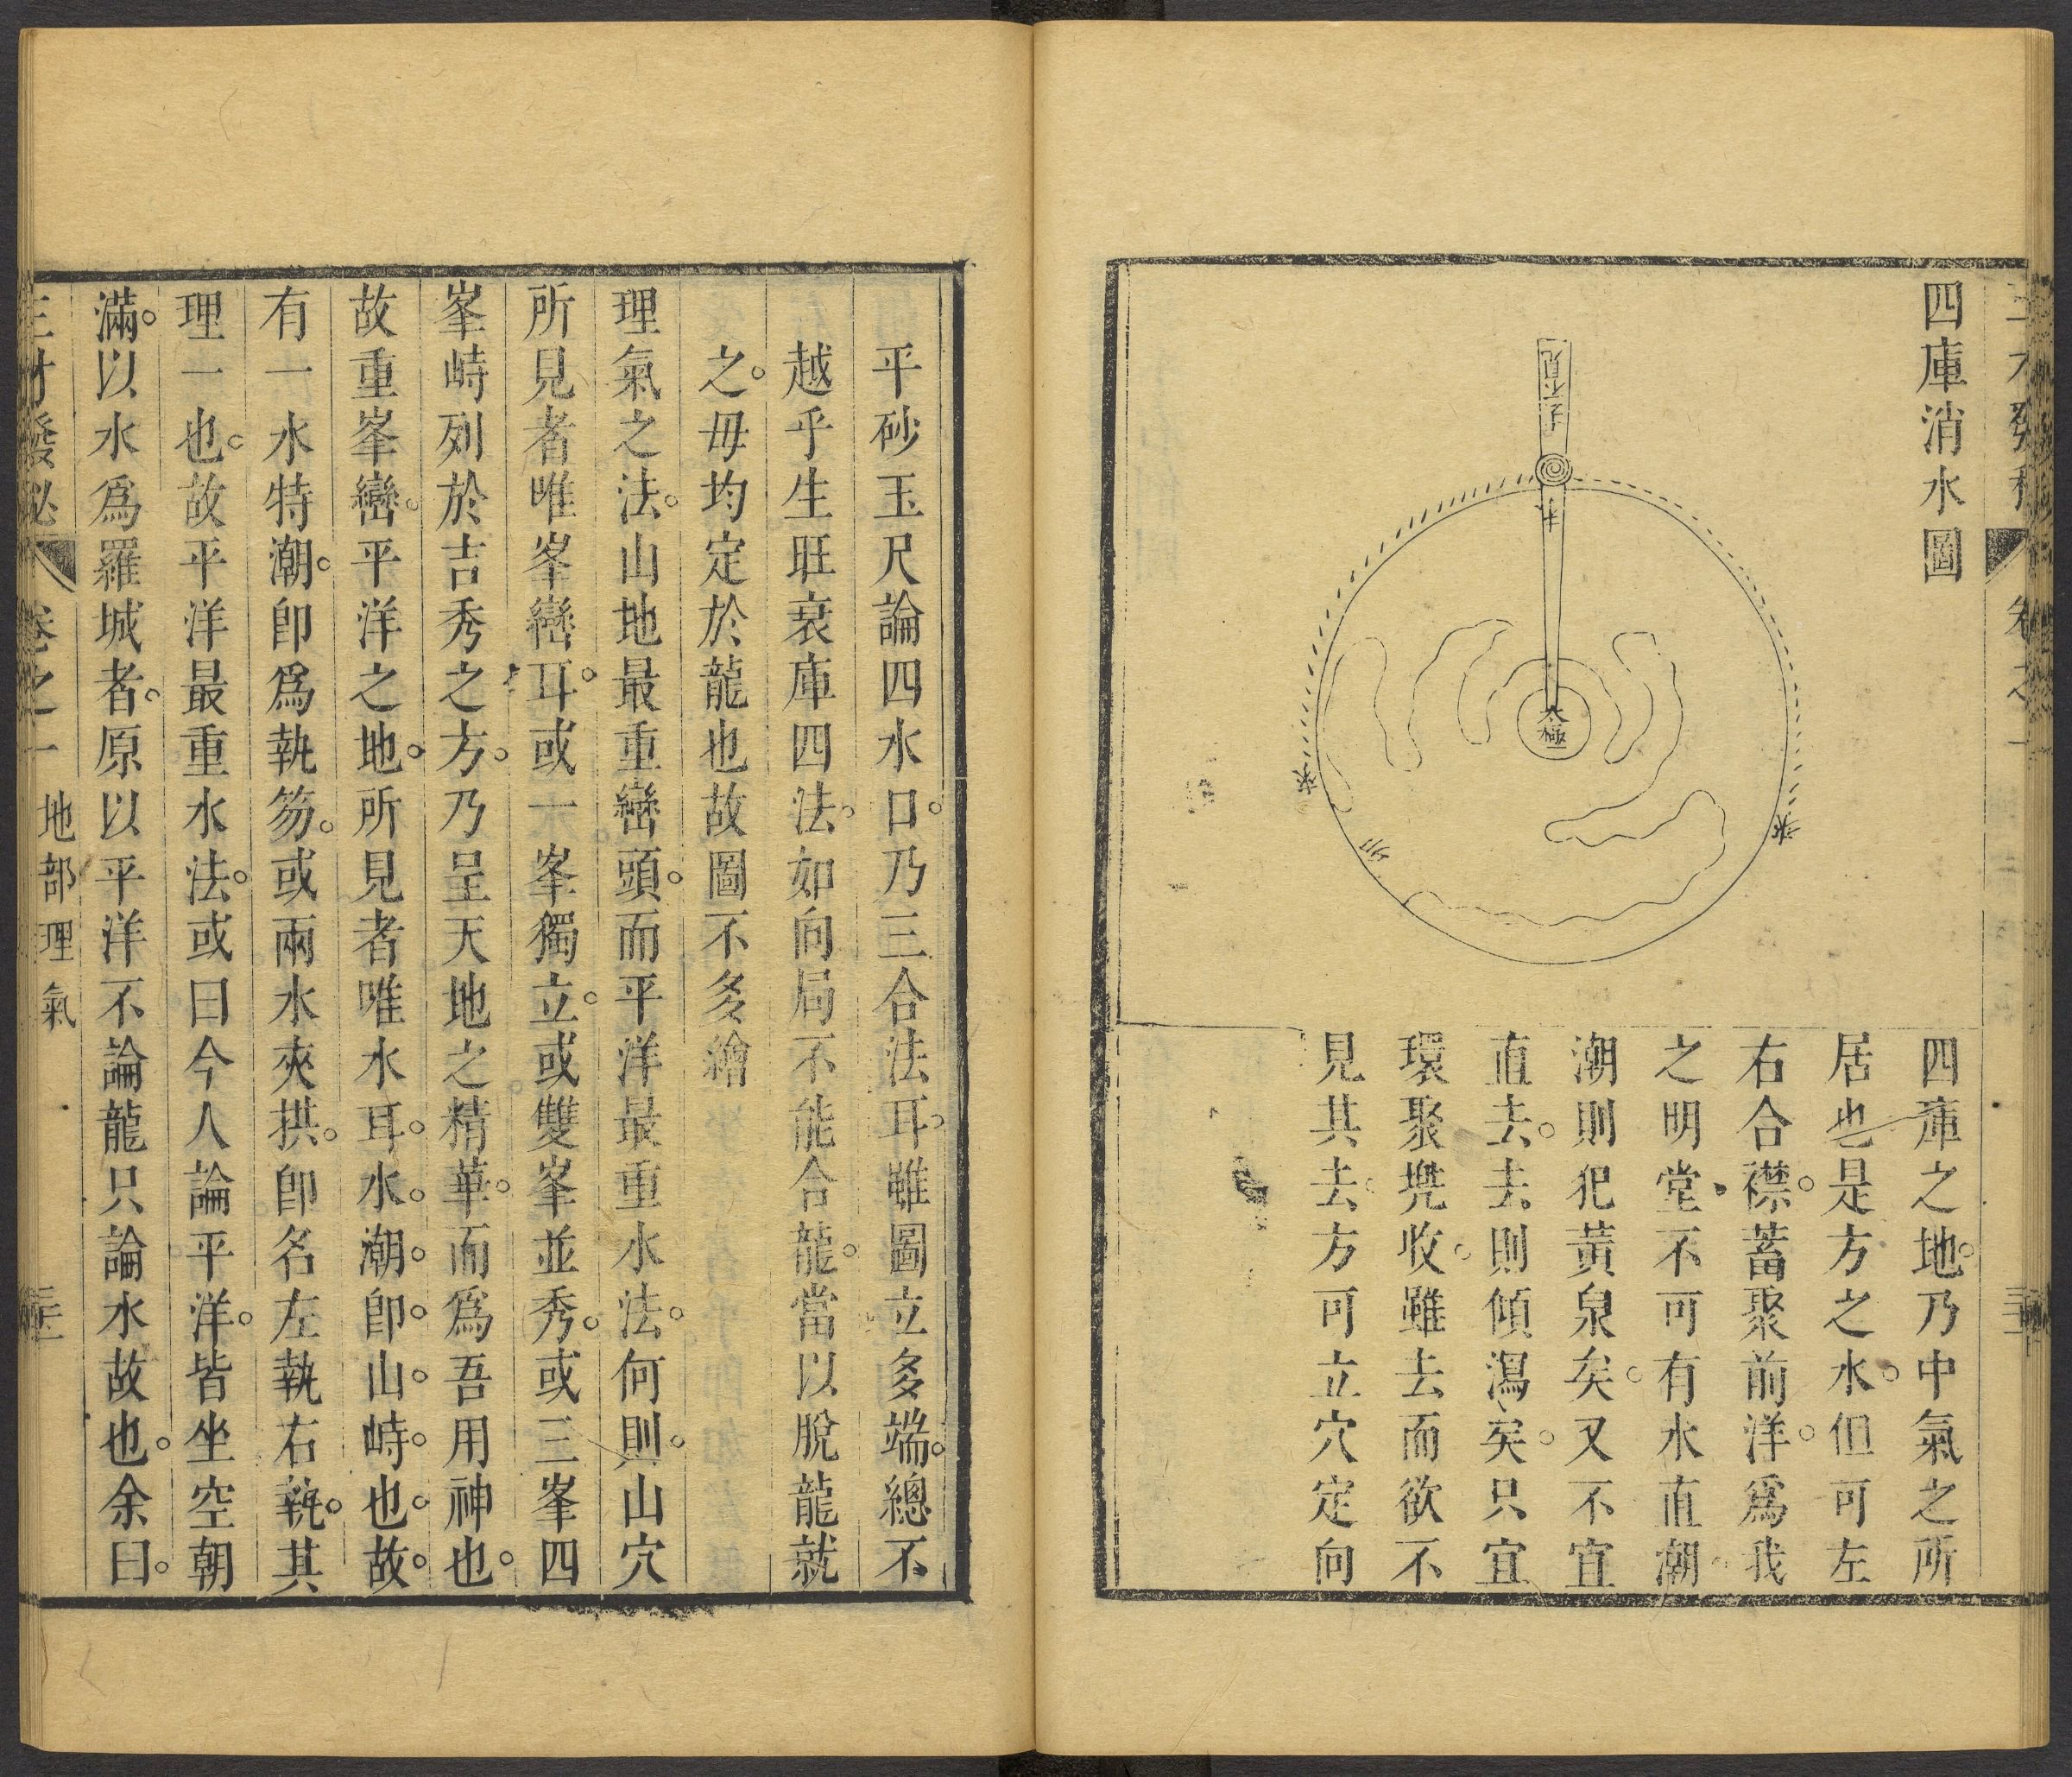 四庫消水圖
子不見
水
太極
水
水
卯
四庫之地。乃中氣之所
居也是方之水。但可左
右合襟。蓄聚前洋。為我
之明堂。不可有水直潮。
潮則犯黃泉矣。又不宜
直去。去則傾瀉矣。只宜
環聚兠收。雖去而欲不
見其去。方可立穴定向
平砂玉尺論四水口。乃三合法耳。雖圖立多端。總不
越乎生旺衰庫四法。如向局不能合龍。當以脫龍就
之。毋均定於龍也故圖不多繪
理氣之法。山地最重巒頭。而平洋最重水法。何則。山穴
所見者唯峯巒耳。或一峯獨立。或雙峯並秀。或三峯四
峯峙列於吉秀之方。乃呈天地之精華。而爲吾用神也。
故重峯巒。平洋之地。所見者唯水耳。水。潮。卽。山。峙。也。故。
有一水特潮。卽爲執笏。或兩水夾拱。卽名左執右執。其
理一也。故平洋最重水法。或曰今人論平洋。皆坐空朝
滿。以水爲羅城者。原以平洋不論龍只論水故也。余曰。
三才發秘
卷之一
地部理氣